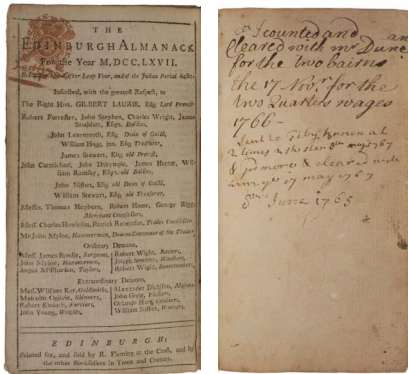 THE
EDINBURGH ALMANACK
For the Year M,DCC,LXVII.
after Leap Year, and of the Julian Period
Inscribed, with the greatest Respect, to
The Right Hon. GILBERT LAURIE, Esq; Lord Provost
Robert Forrester, John Stephen, Charles Wright, James
Stoddart, Esqrs. Bailies,
John Learmonth, Esq; Dean of Guild,
William Hogg, jun. Esq; Treasurer,
James Stewart, Esq; old Provost,
John Carmichael, John Dalrymple, James Hunter, Wil-
liam Ramsay, Esqrs. old Bailies,
John Nisbet, Esq; old Dean of Guild,
William Stewart, Esq; old Treasurer,
Messrs. Thomas Hepburn, Robert Hume, George
Merchant Counsellors,
Mess. Charles Howieson, Patrick Robertson, Trades Counsellors
Mr John Mylne, Hammerman, Deacon Convener of the Trades
Ordinary Deacons,
Mess. James Rennie, Surgeon,
John Mylne, Hammermen,
Angus M'Pharlan, Taylors,
Robert Wight, Baxters,
Joseph
Robert Wight, Bonnetmakers,
Extraordinary Deacons,
Mess. William Ker, Goldsmiths,
Malcolm Ogilvie, Skinners,
Robert Kinloch, Furriers,
John Young, Wrights,
Alexander Dickson, Masons
John Greig, Fleshers,
Orlando Hart, Cordiners,
William Nisbet,
EDINBURGH:
Printed for, and sold by R. Fleming at the Cross, and by
the other Booksellers in Town and Country.
I counted and
cleared with mr
for the two bairns
the 17 Novr. for the
two Quarters wages
1766
may 1767
& cleared
17 may 1767
June 1765